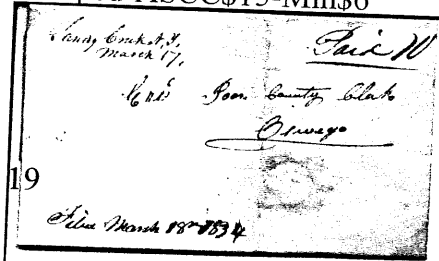 Sandy Creek N.Y.
March 17,
Paid 10
County Clerk
Oswego
19
Filed March 18th 1834